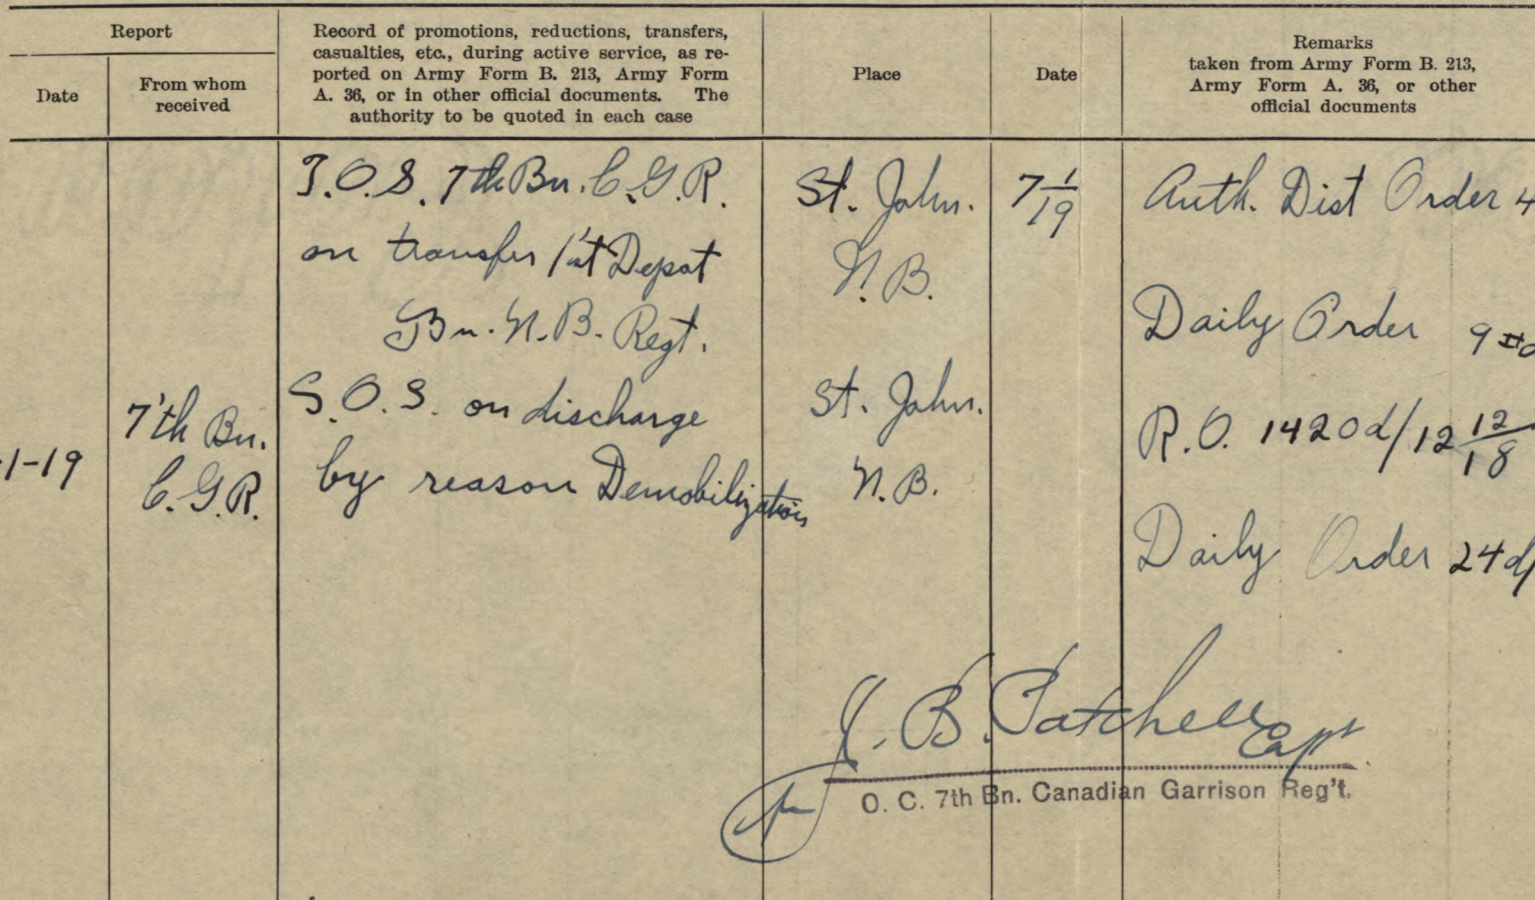 Report
Date
From whom
received
Record of promotions, reductions, transfers,
casualties, etc., during active service, as re-
ported on Army Form B. 213, Army Form
A. 36, or in other official documents. The
authority to be quoted in each case
Place
Date
Remarks
taken from Army Form B. 213,
Army Form A. 36, or other
official documents
T.O.S. 7th Bn. C.G.R.
on transfer 1st Depot
Bn. N.B. Regt.
St. John.
N.B.
7 1/19
Auth. Dist Order 4
Daily Order 9
-1-19
7th Bn.
C.G.R.
S.O.S. on discharge
by reason Demobilization
St. John.
N.B.
R.O. 1420 d/12 12/18
Daily Order 24 d/
J. B. Patchell Capt
O. C. 7th Bn. Canadian Garrison Reg't.